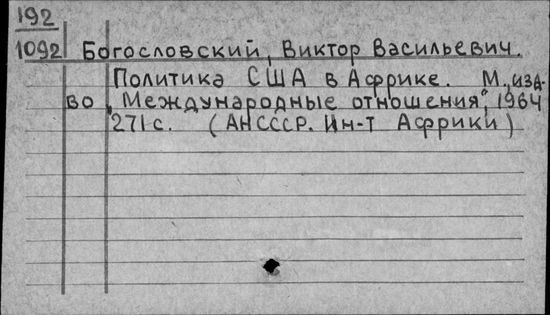 192
1092 Богословский, Виктор Васильевич.
Политика США в Африке. М., изд-
во „Международные отношения", 1964
271 с. (АНСССР. Ин-т Африки)